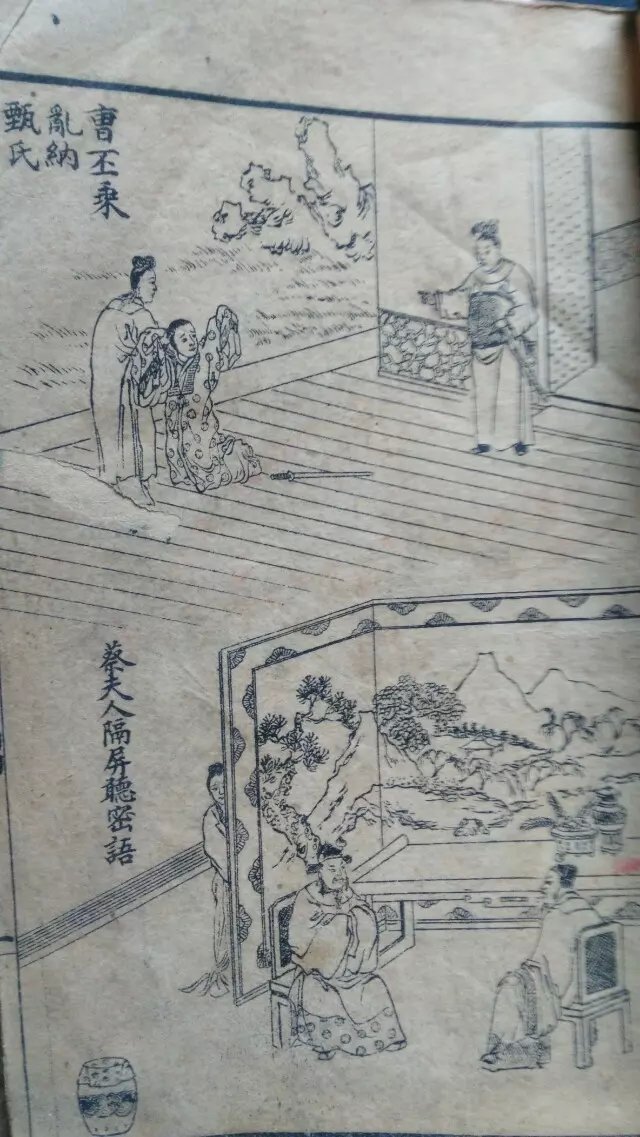 曹丕乘
亂納
甄氏
蔡夫人隔屏聽密語